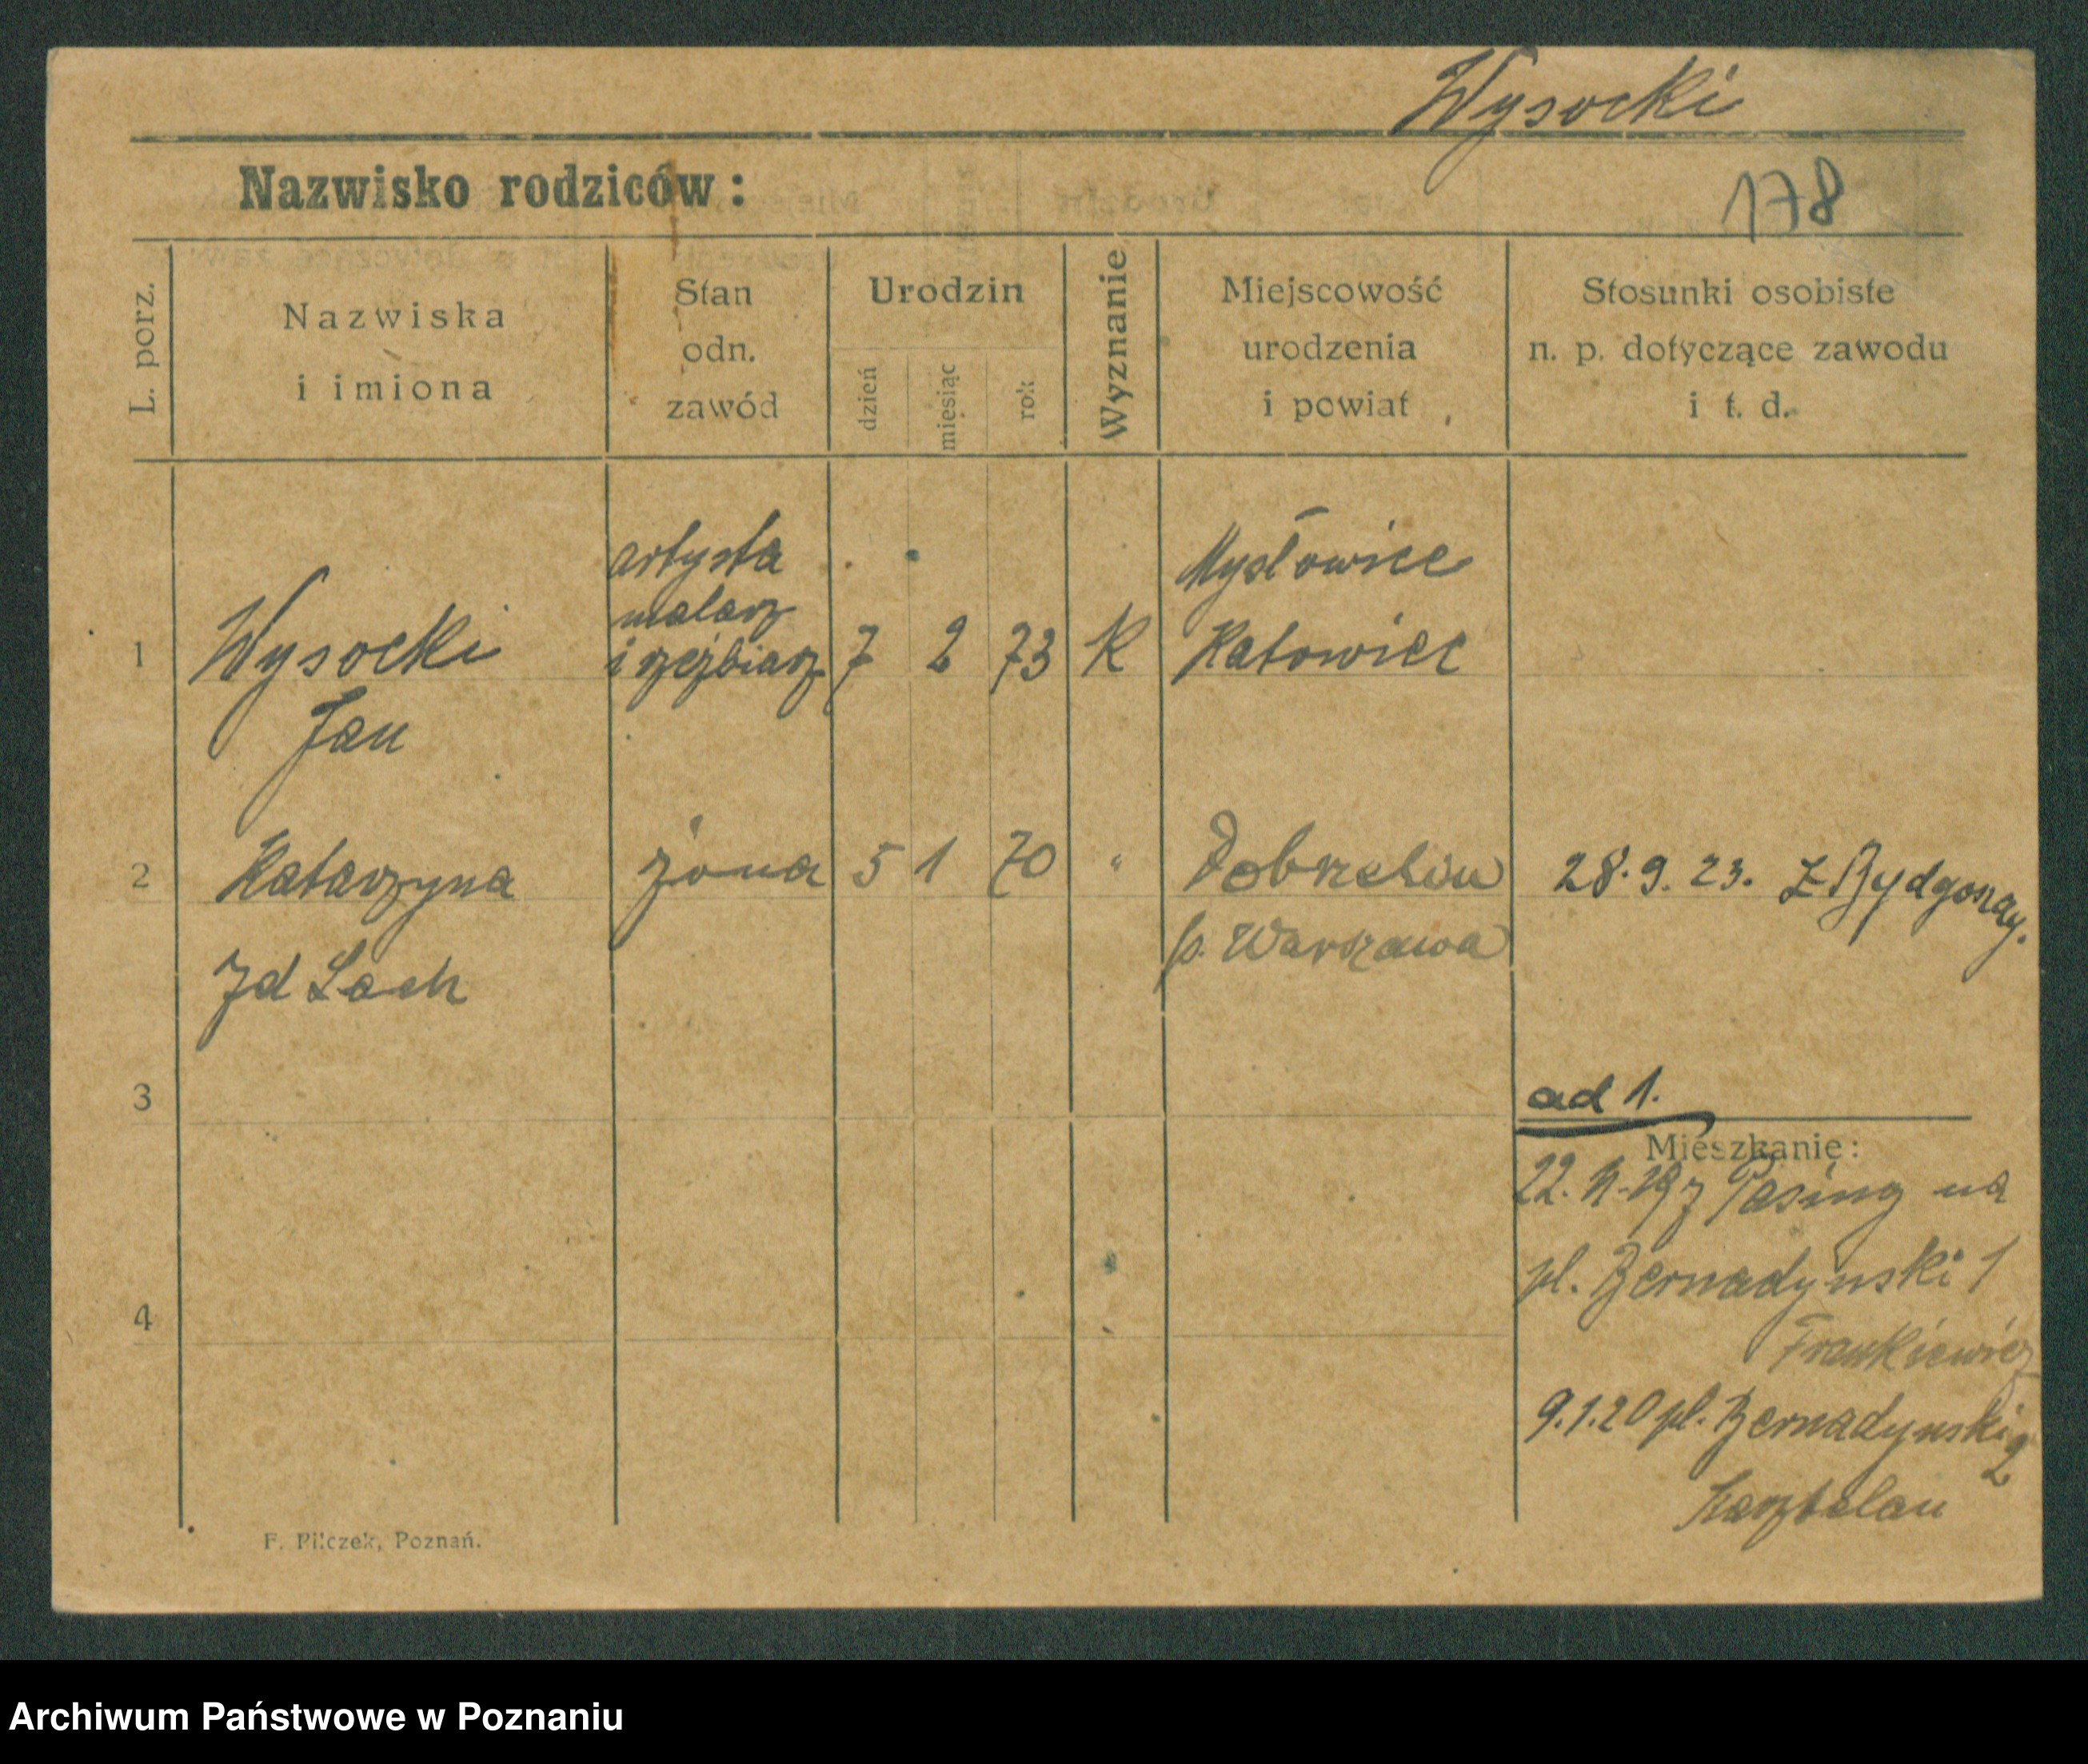 Wysocki
Nazwisko rodziców:
178
L. porz.
Nazwiska
i imiona
Stan
odn.
zawód
Urodzin
dzień
miesiąc
rok
Wyznanie
Miejscowość
urodzenia
i powiat
Stosunki osobiste
n. p. dotyczące zawodu
i t. d.
1
Wysocki
Jan
artysta
malarz
i rzeźbiarz
7 2 73 K
Mysłowice
Katowice
2
Katarzyna
Lach
żona
5 1 70 "
p. Warszawa
28. 9. 23. z Bydgoszczy.
3
ad 1.
Mieszkanie:
22. z Pasing na
pl. Bernadynski 1
Frankiewicz
4
9.1.20 pl. Bernadynski 2
F. Pilczek, Poznań.
Archiwum Państwowe w Poznaniu